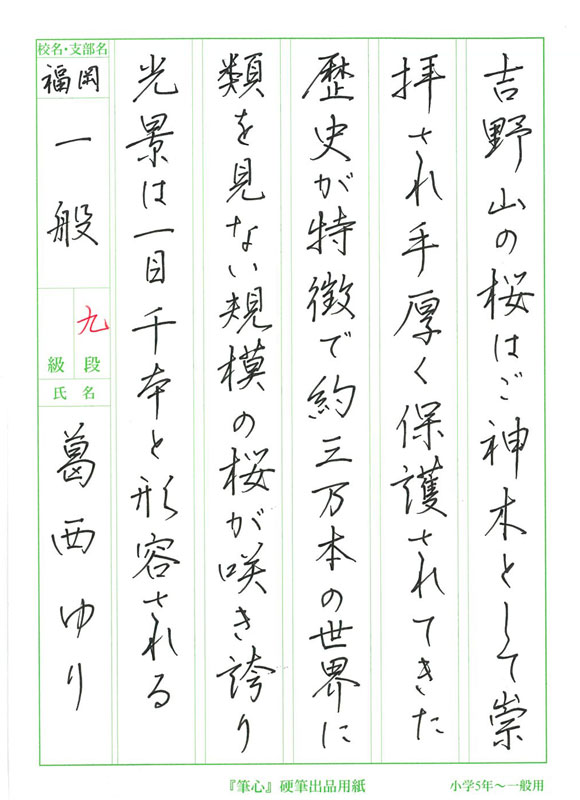 吉野山の桜はご神木として崇
拝され手厚く保護されてきた
歴史が特徴で約三万本の世界に
類を見ない規模の桜が咲き誇り
光景は一目千本と形容される
校名・支部名
福岡
一般
九
段
級
氏名
葛西ゆり
『筆心』硬筆出品用紙
小学5年〜一般用